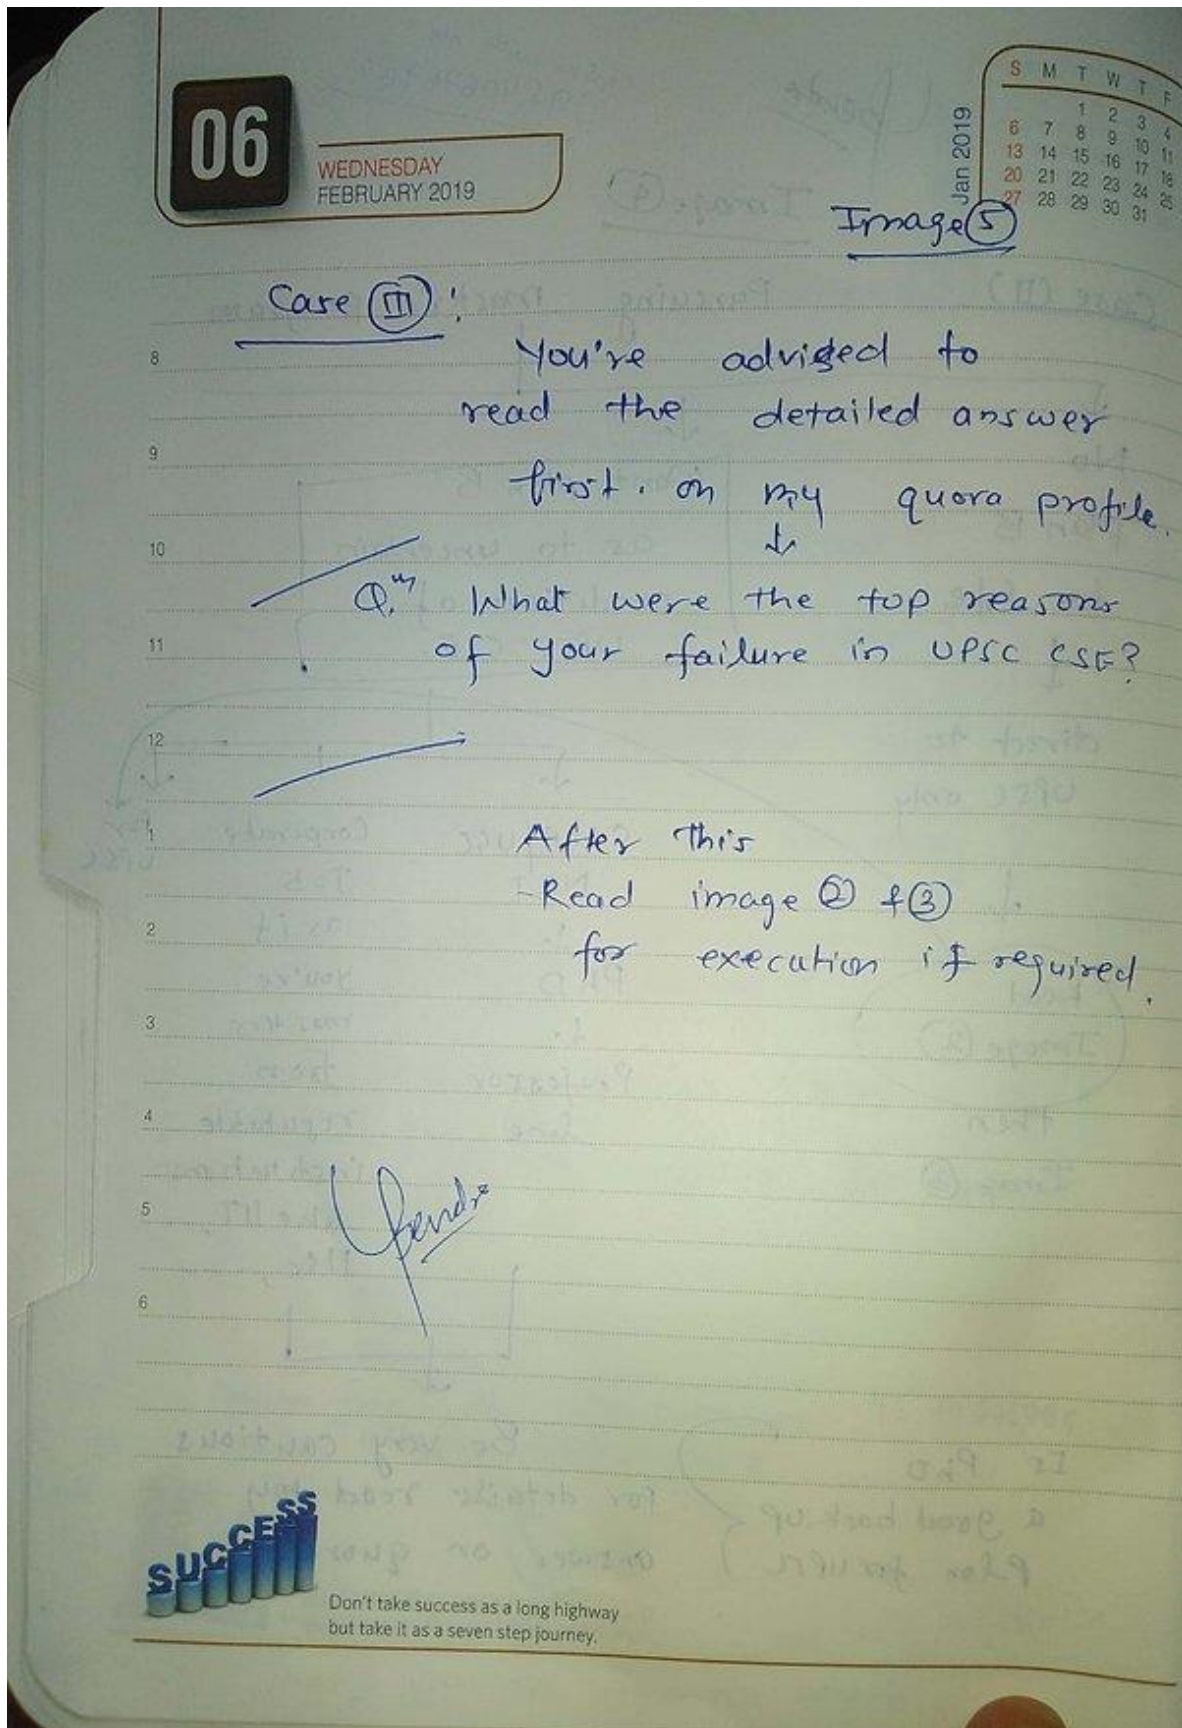 06
WEDNESDAY
FEBRUARY 2019
Jan 2019
S M T W T F
1 2 3 4
6 7 8 9 10 11
13 14 15 16 17 18
20 21 22 23 24 25
27 28 29 30 31
Image 5
Case III :
8
You're advised to
read the detailed answer
9
first. on my quora profile.
10
↓
Q. What were the top reasons
11
of your failure in UPSC CSE?
12
1
After this
Read image 2 & 3
2
for execution if required.
3
4
5
6
SUCCESS
Don't take success as a long highway
but take it as a seven step journey.